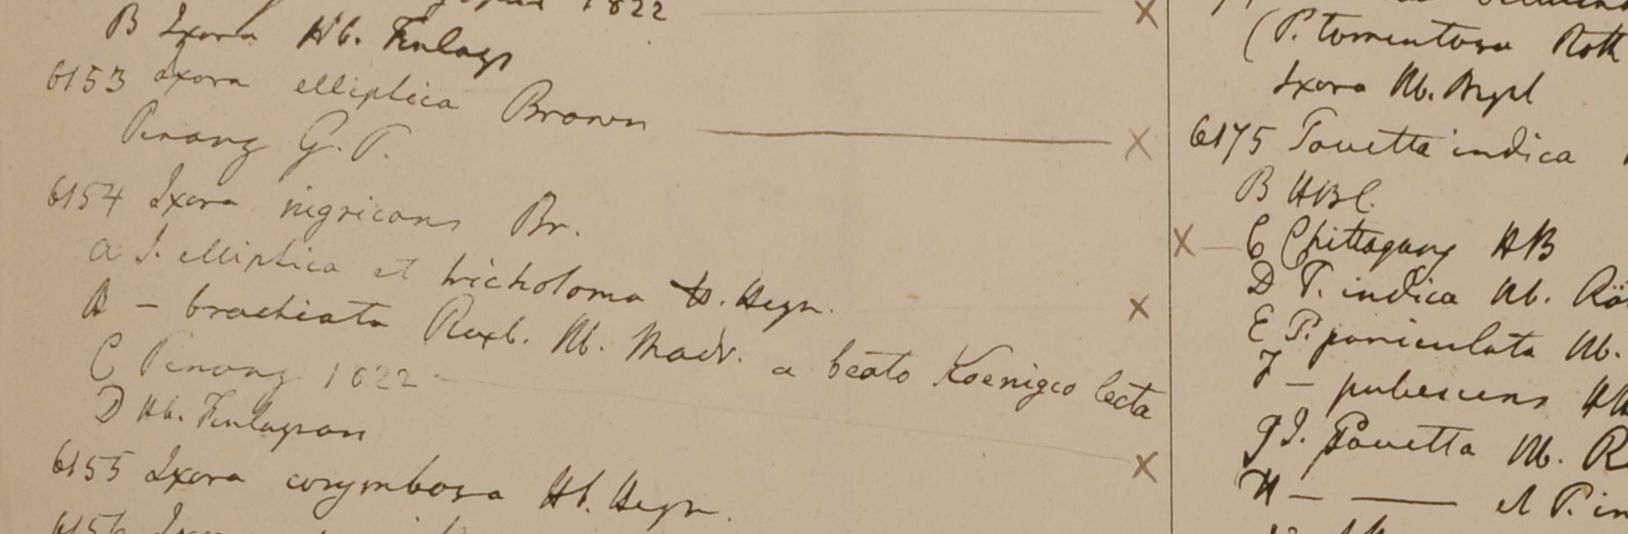 1822
B Ixora Hb. Finlays
6153 Ixora elliptica Brown
Penang G. P.
6154 Ixora nigricans Br.
a I. elliptica et tricholoma Hb. Heyn.
B - brachiata Roxb. Hb. Madr. a beato Koenigeo lecta
C Penang 1822
D Hb. Finlayson
6155 Ixora corymbosa Hb. Heyn.
6156
(P. tomentosa Roth
Ixora Hb.
6175 Pavetta indica
B HBC.
C Chittagong HB
D P. indica Hb.
E P. paniculata Hb.
F - pubescens
G I. Pavetta Hb.
H - et P. in